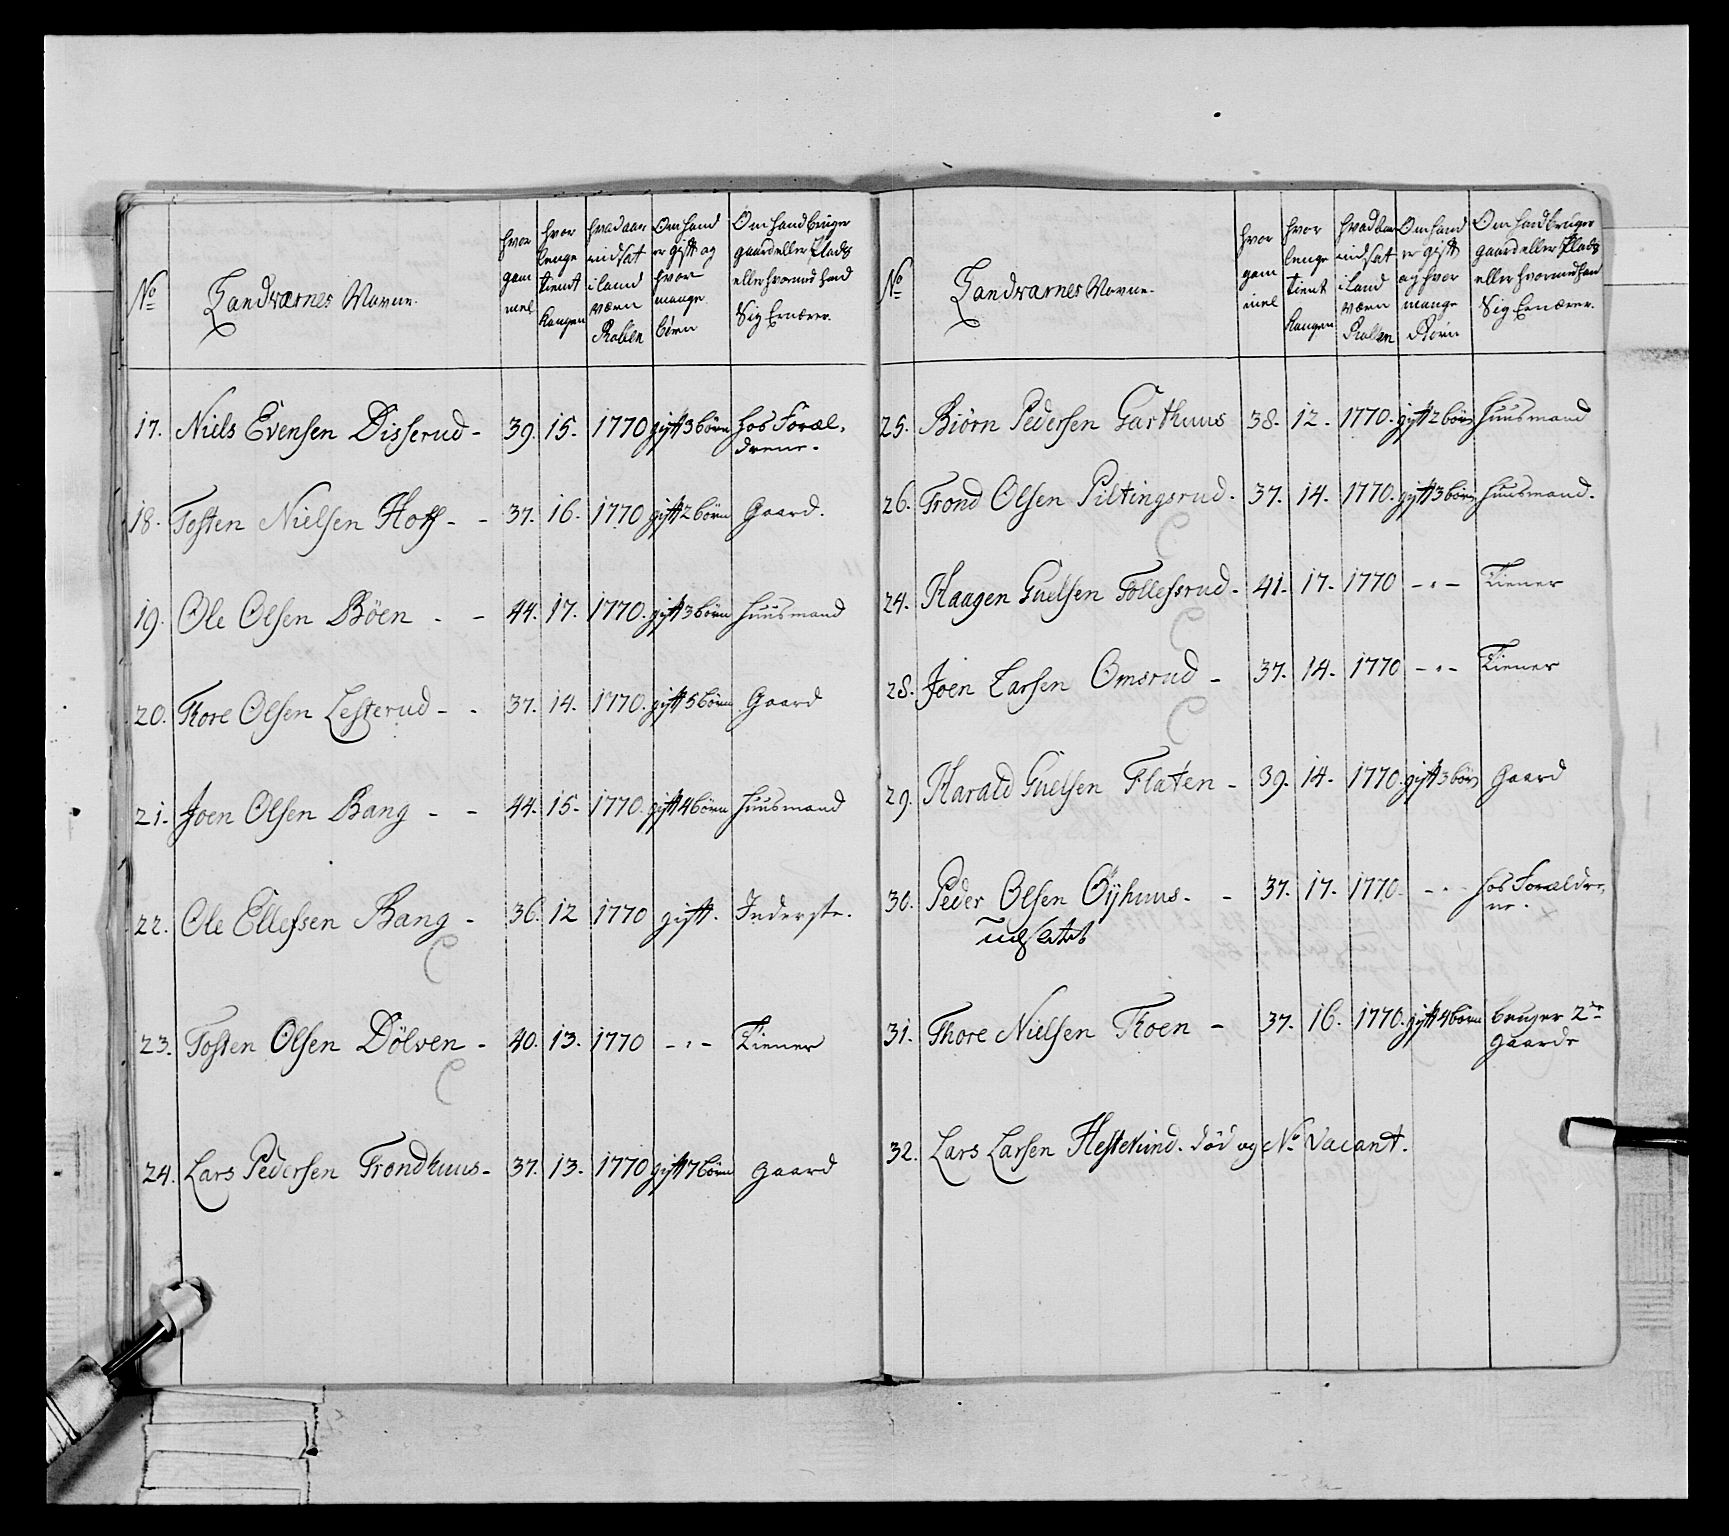 No
Landværnes Navne.
hvor gam mel
hvor lenge tient Kongen
hvad aar indsat i Land værn Rollen
Om hand er gift og hvor mange børn
Om hand bruger gaard eller Plads eller hvormed hand Sig Ernærer.
17. Niels Evensen Disserud - 39. 15. 1770 gift 3 børn hos Foræl-
drene.
18. Tosten Nielsen Hoff - - 37. 16. 1770 gift 2 børn Gaard.
19. Ole Olsen Böen - - 44. 17. 1770. gift 3 børn Huusmand
20. Thore Olsen Lesterud - - 37. 14. 1770. gift 5 børn Gaard
21. Joen Olsen Bang - - 44. 15. 1770. gift 4 børn Huusmand
22. Ole Ellefsen Bang - 36. 12 1770 gift. Inderste.
23. Tosten Olsen Dölven - 40. 13. 1770 - " - Tiener
24. Lars Pedersen Trondhuus - 37. 13. 1770 gift 7 børn gaard
No
Landværnes Navne.
hvor gam mel
hvor lenge tient Kongen
hvad aar indsat i Land værn Rollen
Om hand er gift og hvor mange Børn
Om hand bruger gaard eller Plads eller hvormed hand Sig Ernærer.
25. Biørn Pedersen Garthuus 38. 12. 1770. gift 2 børn Huusmand
26. Trond Olsen Piltingsrud. 37. 14. 1770. gift 3 børn Huusmand.
24. Haagen Guelsen Tollefsrud. 41. 17. 1770 - " - Tiener
28. Joen Larsen Omsrud - 37. 14. 1770 - " - Tiener
29. Harald Guelsen Flaten - 39. 14. 1770. gift 3 børn Gaard
30. Peder Olsen Öyhuus. - 37. 17. 1770. - " - hos Forældre-
ne.
udsletet
31. Thore Nielsen Roen - 37. 16. 1770. gift 4 børn bruger 2de
gaarde
32. Lars Larsen Hestekind. død og No Vacant.